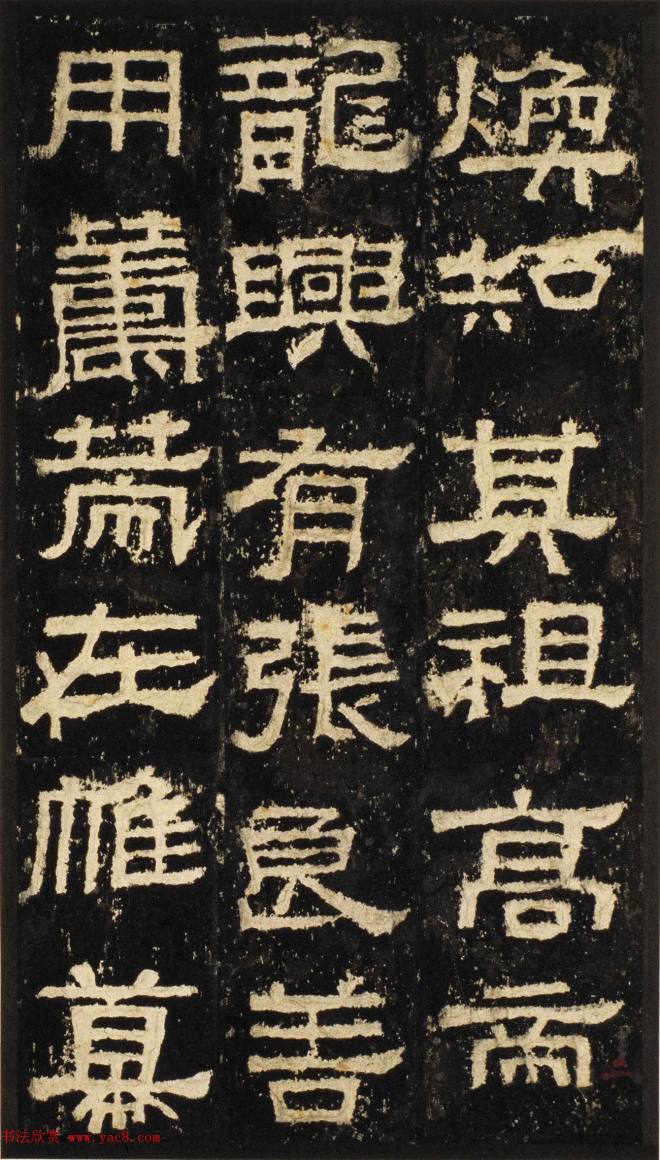 煥知其祖高帝
龍興有張良善
用籌策在帷幕
书法欣赏 www.yac8.com